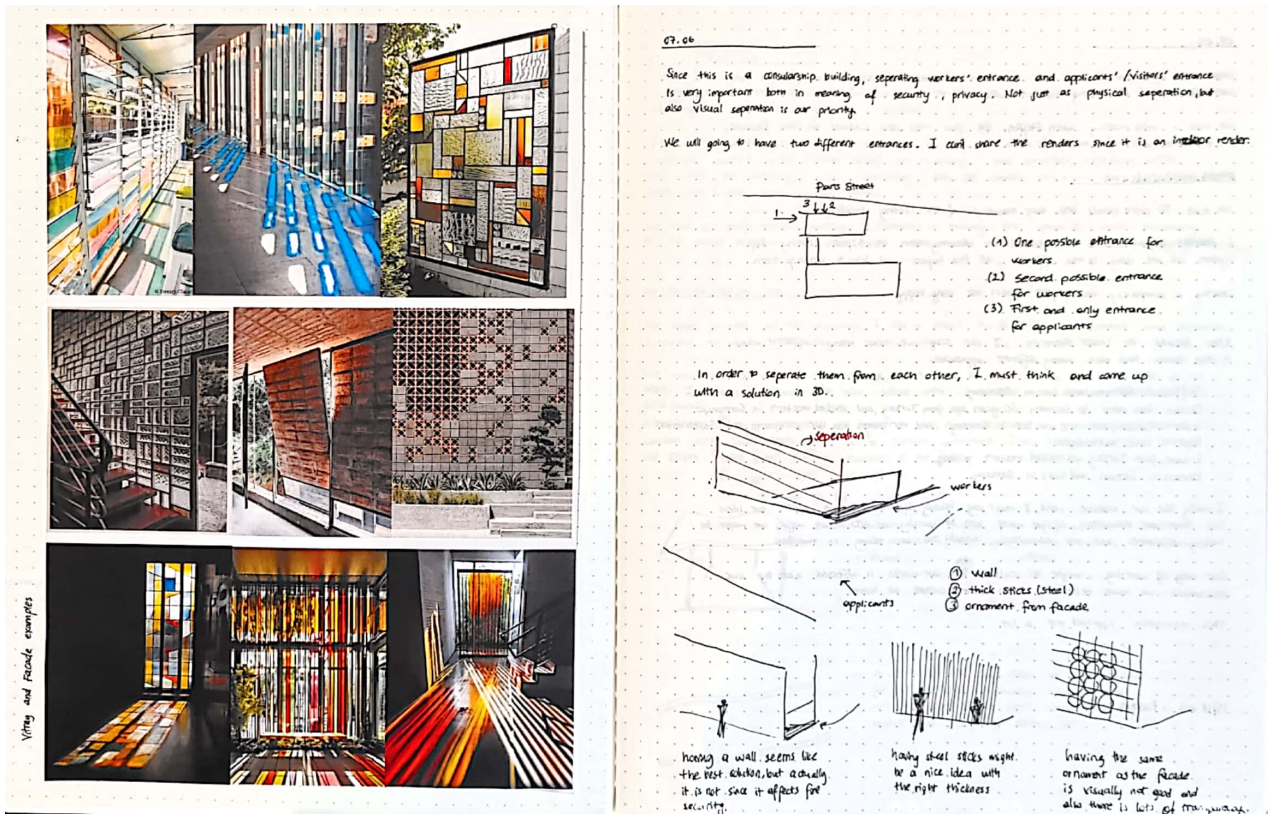 Vitray and Facade examples
07.06
Since this is a consularship building, seperating workers' entrance and applicants' /visitors' entrance
is very important both in meaning of security, privacy. Not just as physical seperation, but
also visual seperation is our priority.
We will going to have two different entrances. I can't share the renders since it is an indoor render.
Paris Street
1. 3 2
(1) One possible entrance for
workers.
(2) Second possible entrance
for workers
(3) First and only entrance
for applicants
In order to seperate them from each other, I must think and came up
with a solution in 3D.
seperation
workers
applicants
① wall
② thick sticks (steel)
③ ornament from facade
having a wall seems like
the best solution, but actually
it is not since it affects for
security.
having steel sticks might
be a nice idea with
the right thickness
having the same
ornament as the facade
is visually not good and
also there is lots of